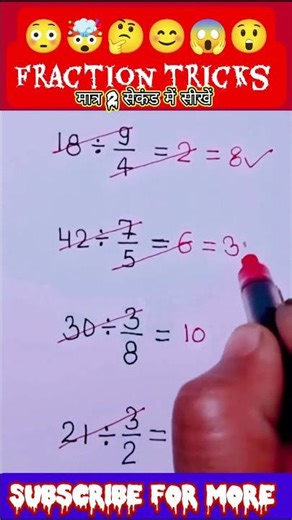 FRACTION TRICKS
मात्र 2 सेकंड में सीखें
18 ÷ 9/4 = 2 = 8✓
42 ÷ 7/5 = 6 = 3
30 ÷ 3/8 = 10
21 ÷ 3/2 =
SUBSCRIBE FOR MORE